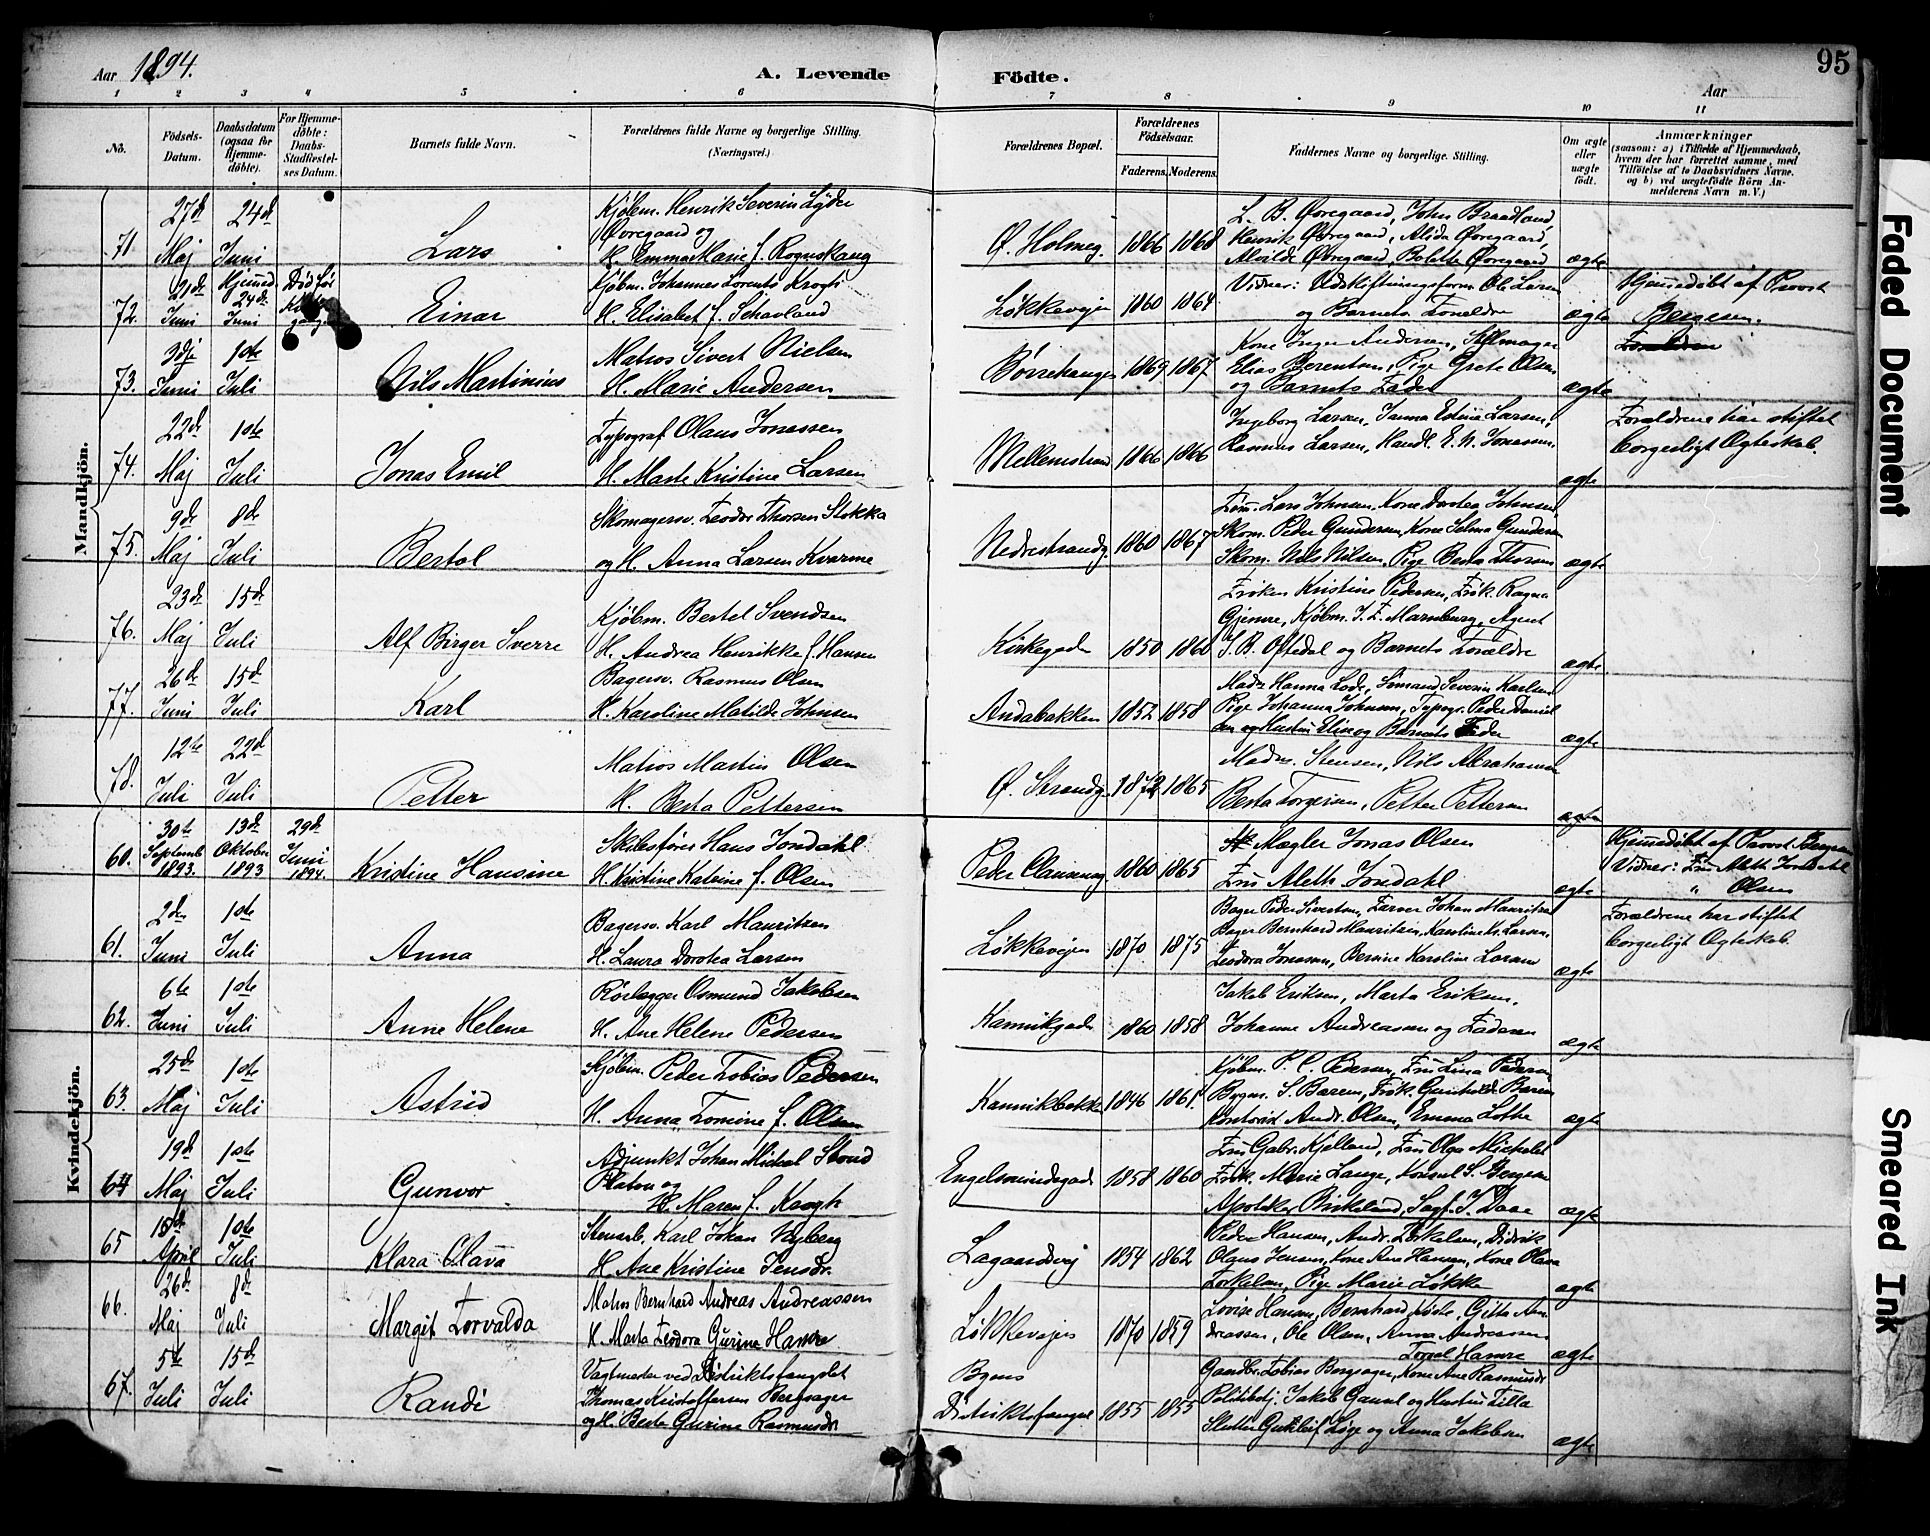 Aar 1894.
A. Levende Födte.
Aar
95
1 2 3 4 5 6 7 8 9 10 11
No.
Födsels-Datum.
Daabsdatum (ogsaa for Hjemme-döbte).
For Hjemme-döbte: Daabs-Stadfæstel-ses Datum.
Barnets fulde Navn.
Forældrenes fulde Navne og borgerlige Stilling. (Næringsvei.)
Forældrenes Bopæl.
Forældrenes Födselsaar.
Faderens. Moderens.
Faddernes Navne og borgerlige Stilling.
Om ægte eller uægte födt.
Anmærkninger
(saasom: a) i Tilfælde af Hjemmedaab, hvem der har forrettet samme, med Tilföielse af to Daabsvidners Navne. og b) ved uægtefödte Börn An-melderens Navn m. V.)
Mandkjön.
71. 27de Maj 24de Juni Lars
Kjøbm. Henrik Severin Lyder
Øvregaard og
H. Emma Marie f. Rognskaug
Ø. Holmeg. 1866 1868
L. B. Øvregaard, John Braadland,
Henrik Øvregaard, Alida Øvregaard,
Alvilde Øvregaard, Bolette Øvregaard
ægte
72. 21de Juni Hjemmed. 24de Juni Død før Einar
Kjøbm. Johannes Lorents Krogh
H. Elisabet f. Schavland
Løkkevejen 1860 1864
Vidner: Udskiftningsform. Ole Larsen
og Barnets Forældre
ægte
Hjemmedöbt af Provst
Bergesen.
73. 3dje Juni 1ste Juli Nils Martinius
Matros Sivert Nielsen
H. Marie Andersen
Børrehaugen 1869 1867
Kone Inger Andersen,
Elias Berentsen, Pige Grete Olsen
og Barnets Fader
ægte
74. 22de Maj 1ste Juli Jonas Emil
Typograf Olaus Jonassen
H. Marte Kristine Larsen
Mellemstraen 1866 1866
Ingeborg Larsen, Janna Estine Larsen,
Rasmus Larsen, Handl. E. N. Jonassen.
ægte
Forældrene har stiftet
borgerligt Ægteskab.
75. 9de Maj 8de Juli Bertol
Skomagersv. Teodor Thorsen Stokka
og H. Anna Larsen Kvarme
Nedrestrandg 1860 1867
Tøm. Lars Johnsen, Kone Dorotea Johnsen
Skom. Peder Gundersen, Kone Selma Gundersen
Skom. Nils Nilsen, Pige Berta Thorsen
ægte
76. 23de Maj 15de Juli Alf Birger Sverre
Kjøbm. Bertel Svendsen
H. Andrea Henrikke f. Hansen
Kirkegaden 1850 1860
Frøken Kristine Pedersen, Frøk. Ragna
Gjemre, Kjøbm. J. F. Marnburg, Agent
S. B. Oftedal og Barnets Forældre
ægte
77. 26de Juni 15de Juli Karl
Bagersv. Rasmus Olsen
H. Karoline Matilde Johnsen
Andabakken 1852 1858
Mad. Hanna Lode, Sømand Severin Karlsen
Pige Johanna Johnsen, Typogr. Peder Daniel
sen og Hustru Eline og Barnets Fader
ægte
78. 12te Juli 22de Juli Petter
Matros Martin Olsen
H. Berta Pettersen
Ø. Strandg. 1872 1865
Madm. Stensen, Nils Abrahamsen
Berta Torgersen, Petter Pettersen
ægte
Kvindekjön.
60. 30te Septemb 1893. 13de Oktober 1893 29de Juni 1894. Kristine Hansine
Skibsfører Hans Jondahl
H. Kristine Katrine f. Olsen
Peder Clausensg 1860 1865
Mægler Jonas Olsen
Fru Aleth Jondahl
ægte
Hjemmedöbt af Provst Bergesen
Vidner: Fru Aleth Jondahl
" Olsen
61. 2den Juni 1ste Juli Anna
Bagersv. Karl Mauritzen
H. Laura Dorotea Larsen
Løkkevejen 1870 1875
Bager Peder Sivertsen, Farver Johan Mauritzen
Bager Bernhard Mauritzen, Karoline Larsen,
Teodora Jonassen, Bernine Karoline Larsen
ægte
Forældrene har stiftet
borgerligt Ægteskab.
62. 6te Juni 1ste Juli Anne Helene
Rørlægger Osmund Jakobsen
H. Ane Helene Pedersen
Kannikgaden 1860 1858
Jakob Eriksen, Marta Eriksen,
Johanne Andreassen og Faderen
ægte
63. 25de Maj 1ste Juli Astrid
Kjøbm. Peder Tobias Pedersen
H. Anna Tomine f. Olsen
Kannikbakke 1846 1861.
Kjøbm. P. C. Pedersen, Fru Lina Pedersen
Bygm. S. Barem, Frøk. Gunhild Barem
Kontorist Andr. Olsen, Emma Lothe
ægte
64 19de Maj 1ste Juli Gunvor
Adjunkt Johan Michael Stoud
Platou og
H. Maren f. Krogh
Engelsmindegade 1858 1860
Fru Gabr. Kjelland, Fru Olga Michelet
Frøk. Marie Lange, Konsul S. Bergesen
Apoteker Birkeland, Sagf. J. Daae
ægte
65 18de April 1ste Juli Klara Olava
Stenarb. Karl Johan Nyberg
H. Ane Kristine Jensdr.
Lagaardsvej 1854 1862
Peder Hansen, Andr. Torkelsen, Didrik
Olaus Jensen, Kone Ane Hansen, Kone Olava
Torkelsen, Pige Marie Løkke
ægte
66. 26de Maj 8de Juli Margit Torvalda
Matros Bernhard Andreas Andreassen
H. Marta Teodora Gurine Hamre
Løkkevejen 1870 1859
Lovise Hansen, Bernhard Køste, Gitta An-
dreassen, Ole Olsen, Anna Andreassen
Torval Hamre
ægte
67. 5te Juli 15de Juli Randi
Vagtmester ved Distriktsfængslet
Thomas Kristoffersen Bergsager
og H. Berta Gurine Rasmusdr.
Byens
Distriktsfængsel 1855 1855
Gaardbr. Tobias Bergsager, Kone Ane Rasmusdr
Politibetj. Jakob Gausel og Hustru Tilla
Slutter Gutleif Løge og Anna Jakobsen
ægte
Faded Document
Smeared Ink